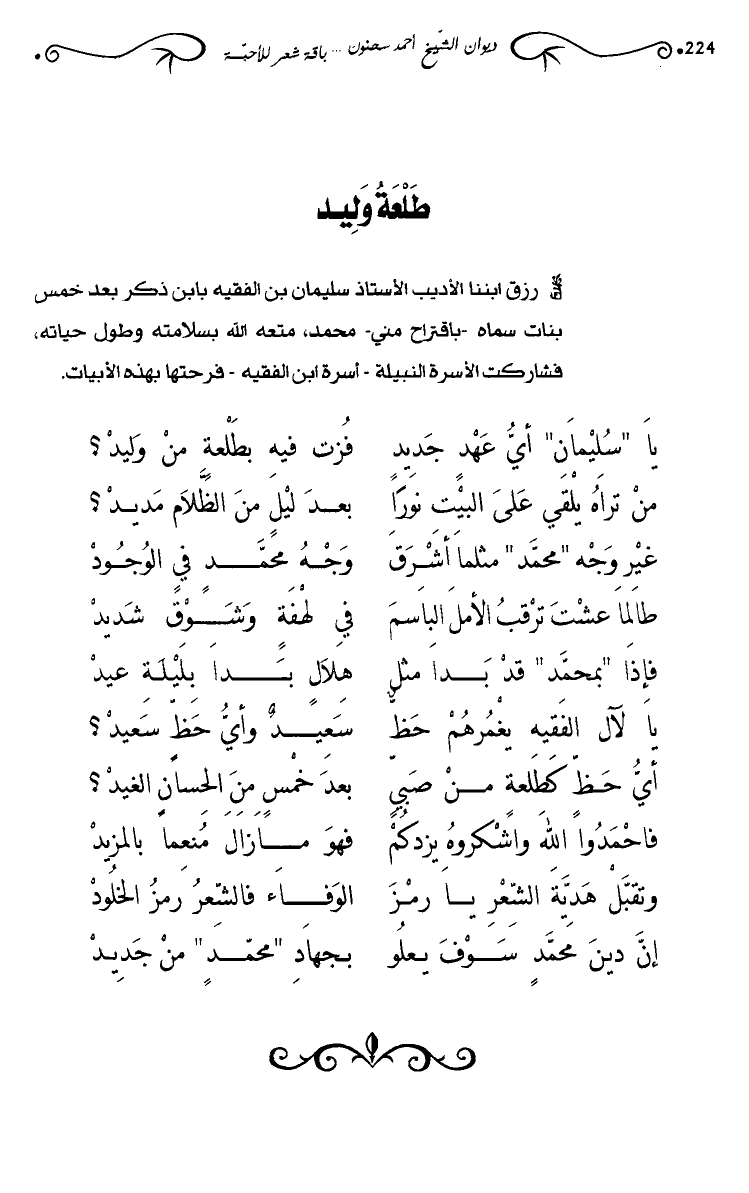 224 ديوان الشّيخ أحمد سحنون ... باقة شعر للأحبّة
طَلْعَةُ وَلِيد
رزق ابننا الأديب الأستاذ سليمان بن الفقيه بابن ذكر بعد خمس
بنات سماه -باقتراح مني- محمد، متعه الله بسلامته وطول حياته،
فشاركت الأسرة النبيلة - أسرة ابن الفقيه - فرحتها بهذه الأبيات.
يَا "سُلَيْمان" أيُّ عَهْدٍ جَديدٍ فُزْت فيه بطَلْعةٍ منْ وَليدْ؟
منْ تراهُ يلْقي عَلىَ البيْت نورًا بعـد ليْلٍ منَ الظَّلَام مَديدْ؟
غيْرِ وَجْه "محمَّد" مثلما أشْرَقَ وَجْهُ محمَّدٍ في الوُجُودْ
طالما عشْتَ ترْقبُ الأملَ الباسمَ في لهْفةٍ وَشَوْقٍ شَديدْ
فإذا "بمحمَّد" قدْ بَدا مثلَ هلَالٍ بَدا بليْلَة عيدْ
يا لَآل الفقيه يغْمُرهُمْ حَظٌّ سَعيدٌ وأيُّ حَظٍّ سَعيد؟
أيُّ حَظٍّ كَطَلعة منْ صَبيٍّ بعدَ خمْسٍ منَ الحسانِ الغيد؟
فاحْمَدُوا اللهَ واشْكروهُ يزدكُمْ فهوَ مازَالَ مُنعماً بالمزيدْ
وتقبَّلْ هَديَّةَ الشّعْرِ يا رمْزَ الوَفاء فالشّعرُ رمزُ الخلُودْ
إنَّ دينَ محمَّدٍ سَوْفَ يعلُو بجهادِ "محمّدٍ" منْ جَديدْ